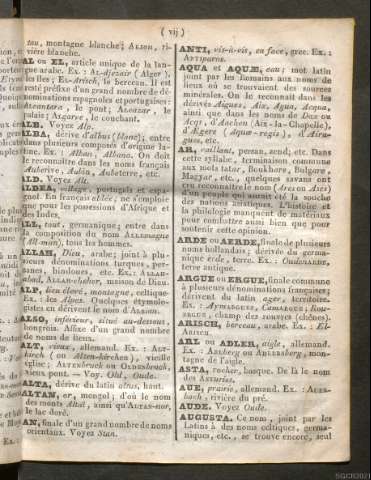 ( vij )
tau, montagne blanche; ALSON, ri-
vière blanche.
AL ou EL, article unique de la lan-
gue arabe. Ex. : AL-djezair (Alger),
les îles; EL-Arisch, le berceau. Il est
resté préfixe d'un grand nombre de dé-
nominations espagnoles et portugaises:
Alcantara, le pont; ALcazar, le
palais; ALgarve, le couchant.
ALB. Voyez Alp.
ALBA, dérivé d'albus (blanc), entre
dans plusieurs composés d'origine la-
tine. Ex. : Alban, Albano. On doit
le reconnaître dans les noms français
Auberive, Aubin, Aubeterre, etc.
ALD. Voyez Alt.
ALDEA, village, portugais et espa-
gnol. En français aldée, ne s'emploie
que pour les possessions d'Afrique et
des Indes.
ALL, tout, germanique; entre dans
la composition du nom ALLEMAGNE
(All-man), tous les hommes.
ALLAH, Dieu, arabe; joint à plu-
sieurs dénominations turques, per-
sanes, hindoues, etc. Ex.:
maison de Dieu.
ALP, lieu élevé, montagne, celtique.
Ex. : les Alpes. Quelques étymolo-
gistes en dérivent le nom d'
ALSO, inférieur, situé au-dessous,
hongrois. Affixe d'un grand nombre
de noms de lieux.
ALT, vieux, allemand. Ex. : ALT-
kirch (ou Alten-kirchen), vieille
église; ALTENBRUCH ou OLDENBRUCH,
vieux pont. — Voy. Old, Oude.
ALTA, dérivé du latin altus, haut.
ALTAN, or, mongol; d'où le nom
des monts Altaï, ainsi qu'ALTAN-nor,
le lac doré.
AN, finale d'un grand nombre de noms
orientaux. Voyez Stan.
ANTI, vis-à-vis, en face, grec. Ex. :
ANTIPAROS.
AQUA et AQUÆ, eau; mot latin
joint par les Romains aux noms de
lieux où se trouvaient des sources
minérales. On le reconnaît dans les
dérivés Aigues, Aix, Agua, Acqua,
ainsi que dans les noms de Dax ou
Acqs, d'Aachen (Aix-la-Chapelle),
d'Aigre (Aquæ-regis), d'Airai-
gues, etc.
AR, vaillant, persan, zend; etc. Dans
cette syllabe, terminaison commune
aux mots tatar, Boukhare, Bulgare,
Magyar, etc., quelques savans ont
cru reconnaître le nom (Ares ou Ases)
d'un peuple qui aurait été la souche
des nations asiatiques. L'histoire et
la philologie manquent de matériaux
pour combattre aussi bien que pour
soutenir cette opinion.
ARDE ou AERDE, finale de plusieurs
noms hollandais; dérivée du germa-
nique erde, terre. Ex. : OUDENARDE,
terre antique.
ARGUE ou ERGUE, finale commune
à plusieurs dénominations françaises;
dérivent du latin ager, territoire.
Ex. : AYMARGUES, CAMARGUE; ROU-
ERGUE, champ des sources (chênes).
ARISCH, berceau, arabe. Ex. : EL-
ARISCH.
ARL ou ADLER, aigle, allemand.
Ex. : ARLBERG ou ADLERSBERG, mon-
tagne de l'aigle.
ASTA, rocher, basque. De là le nom
des ASTURIES.
AUE, prairie, allemand. Ex. : AUER-
bach, rivière du pré.
AUDE. Voyez Oude.
AUGUSTA. Ce nom, joint par les
Latins à des noms celtiques, germa-
niques, etc., se trouve encore, seul
SGCR2021